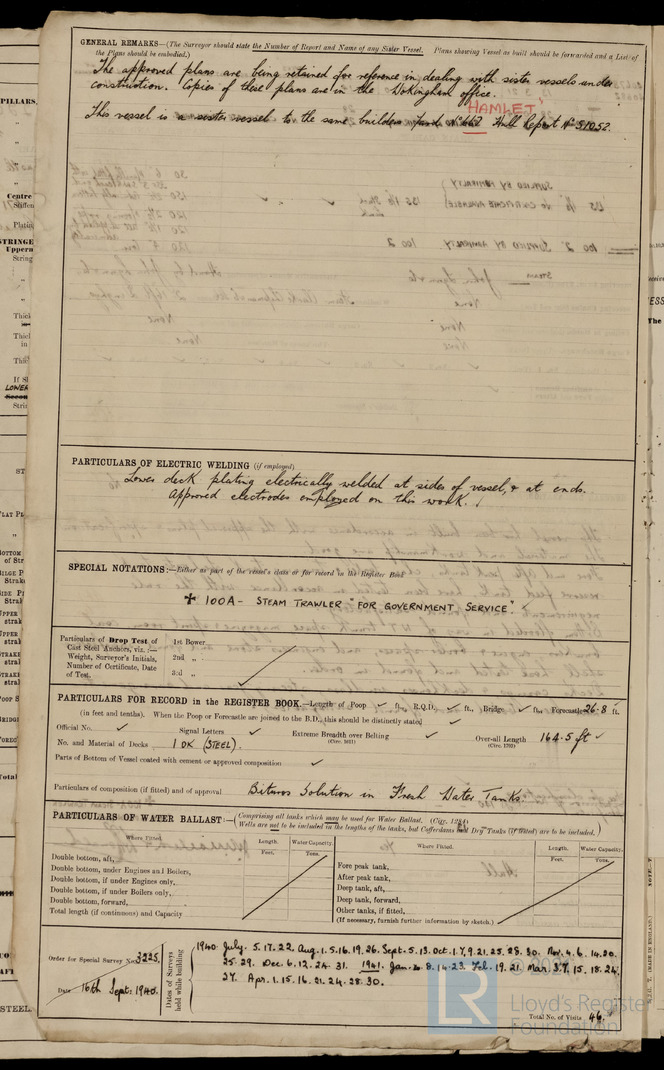 GENERAL REMARKS—(The Surveyor should state the Number of Report and Name of any Sister Vessel. Plans showing Vessel as built should be forwarded and a List of
the Plans should be embodied.)
The approved plans are being retained for reference in dealing with sister vessels under
construction. Copies of these plans are in the Wokingham office.
"HAMLET"
This vessel is a sister vessel to the same builders Yard No 667 Hull Report No 51052.
PARTICULARS OF ELECTRIC WELDING (if employed)
Lower deck plating electrically welded at sides of vessel, & at ends.
Approved electrodes employed on this work.
SPECIAL NOTATIONS:—Either as part of the vessel's class or for record in the Register Book
✠ 100A- STEAM TRAWLER "FOR GOVERNMENT SERVICE".
Particulars of Drop Test of
Cast Steel Anchors, viz.:—
Weight, Surveyor's Initials,
Number of Certificate, Date
of Test.
1st Bower
2nd "
3rd "
PARTICULARS FOR RECORD in the REGISTER BOOK.—Length of Poop ✓ ft., R.Q.D. ✓ ft., Bridge ✓ ft., Forecastle 26.8 ft.
(in feet and tenths). When the Poop or Forecastle are joined to the B.D., this should be distinctly stated ✓
Official No. ✓ Signal Letters ✓ Extreme Breadth over Belting ✓ Over-all Length 164.5 ft ✓
(Circ. 1611) (Circ. 1703)
No. and Material of Decks 1 DK (STEEL).
Parts of Bottom of Vessel coated with cement or approved composition ✓
Particulars of composition (if fitted) and of approval Bituros Solution in Fresh Water Tanks.
PARTICULARS OF WATER BALLAST:—(Comprising all tanks which may be used for Water Ballast. (Circ. 1284)
Wells are not to be included in the lengths of the tanks, but Cofferdams and Dry Tanks (if fitted) are to be included.)
Where Fitted. Length. Water Capacity. Where Fitted. Length. Water Capacity.
Feet. Tons. Feet. Tons.
Double bottom, aft,
Double bottom, under Engines and Boilers,
Double bottom, if under Engines only,
Double bottom, if under Boilers only,
Double bottom, forward,
Total length (if continuous) and Capacity
Fore peak tank,
After peak tank,
Deep tank, aft,
Deep tank, forward,
Other tanks, if fitted,
(If necessary, furnish further information by sketch.)
Order for Special Survey No. 3225.
Date 16th Sept. 1940.
Dates of Surveys
held while building
1940 July. 5. 17. 22. Aug. 1. 5. 16. 19. 26. Sept. 5. 13. Oct. 1. 7. 9. 21. 25. 28. 30. Nov. 4. 6. 14. 20.
25. 29. Dec. 6. 12. 24. 31. 1941. Jan. 8. 14. 23. Feb. 19. 21. Mar. 3. 7. 15. 18. 24.
27. Apr. 1. 15. 16. 21. 24. 28. 30.
Total No. of Visits 46.
LR
Lloyd's Register
Foundation